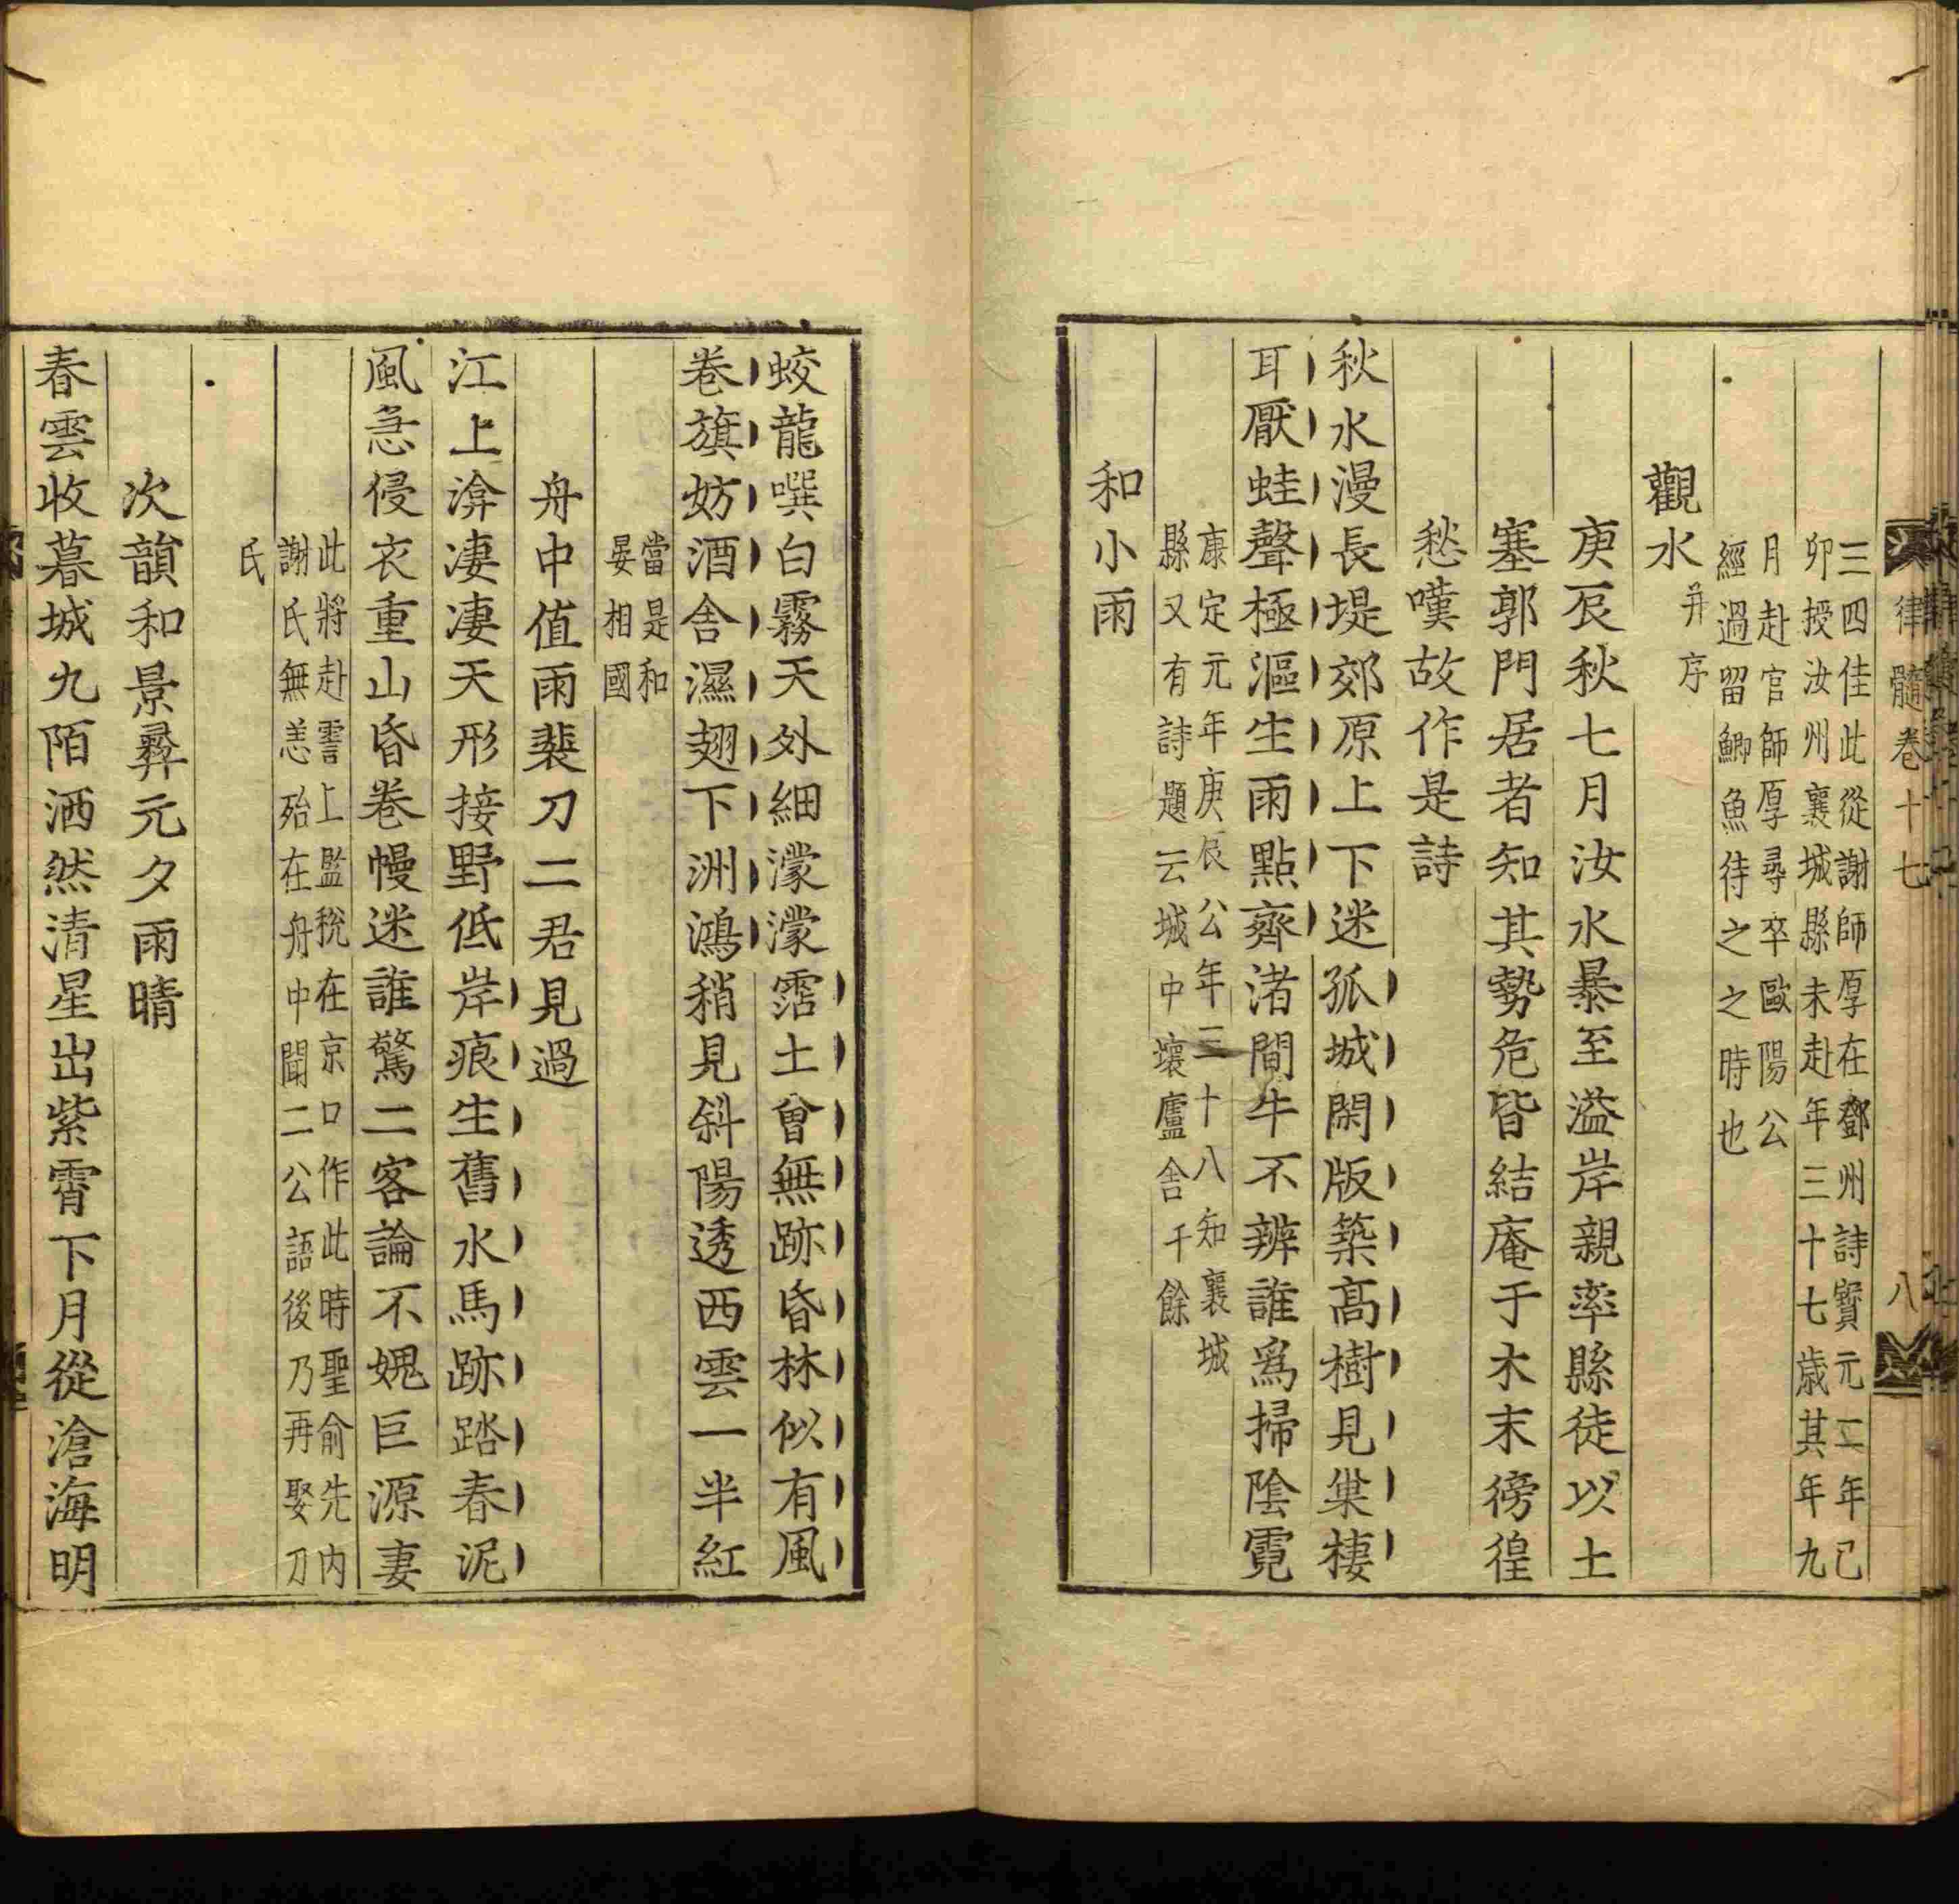 律髓卷十七
八
三四佳此從謝師厚在鄧州詩寶元二年己
卯授汝州襄城縣未赴年三十七歲其年九
月赴官師厚尋卒歐陽公
經過留鯽魚待之之時也
觀水
并序
庚辰秋七月汝水暴至溢岸親率縣徒以土
塞郭門居者知其勢危皆結庵于木末徬徨
愁嘆故作是詩
秋水漫長堤郊原上下迷孤城閑版築高樹見巢棲
耳厭蛙聲極漚生雨點齊渚間牛不辨誰爲掃陰霓
康定元年庚辰公年三十八知襄城
縣又有詩題云城中壞廬舍千餘
和小雨
蛟龍噀白霧天外細濛濛霑土曾無跡昏林似有風
卷旗妨酒舍濕翅下洲鴻稍見斜陽透西雲一半紅
當是和
晏相國
舟中值雨裴刀二君見過
江上渰凄凄天形接野低岸痕生舊水馬跡踏春泥
風急侵衣重山昏卷幔迷誰驚二客論不媿巨源妻
此將赴霅上監稅在京口作此時聖俞先内
謝氏無恙殆在舟中聞二公語後乃再娶刀
氏
次韻和景彞元夕雨晴
春雲收暮城九陌洒然清星出紫霄下月從滄海明